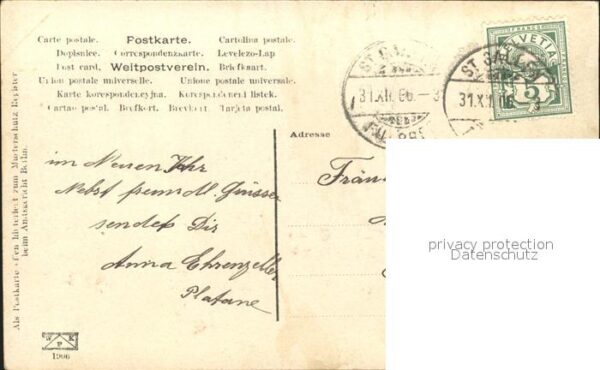 Carte postale. Postkarte. Cartolina postale.
Dopisnice. Correspondenzkarte. Levelezo-Lap
Post card. Weltpostverein. Brefkaart.
Union postale universelle. Unione postale universale.
Karta korespondencyjna. Korespondencni listek.
Cartao postal. Brefkort. Brevkort. Tarjeta postal.
Adresse
im Neuen Jahr
Nebst freundl. Grüssen
sendet Dir
Anna Ehrenzeller
Platane
Fräu
HELVETIA
5
ST. GALLEN
31.XII.06.
31.XII.06
privacy protection
Datenschutz
Als Postkarte offen hinterlegt zum Musterschutz Register
beim Amtsgericht Berlin.
1906